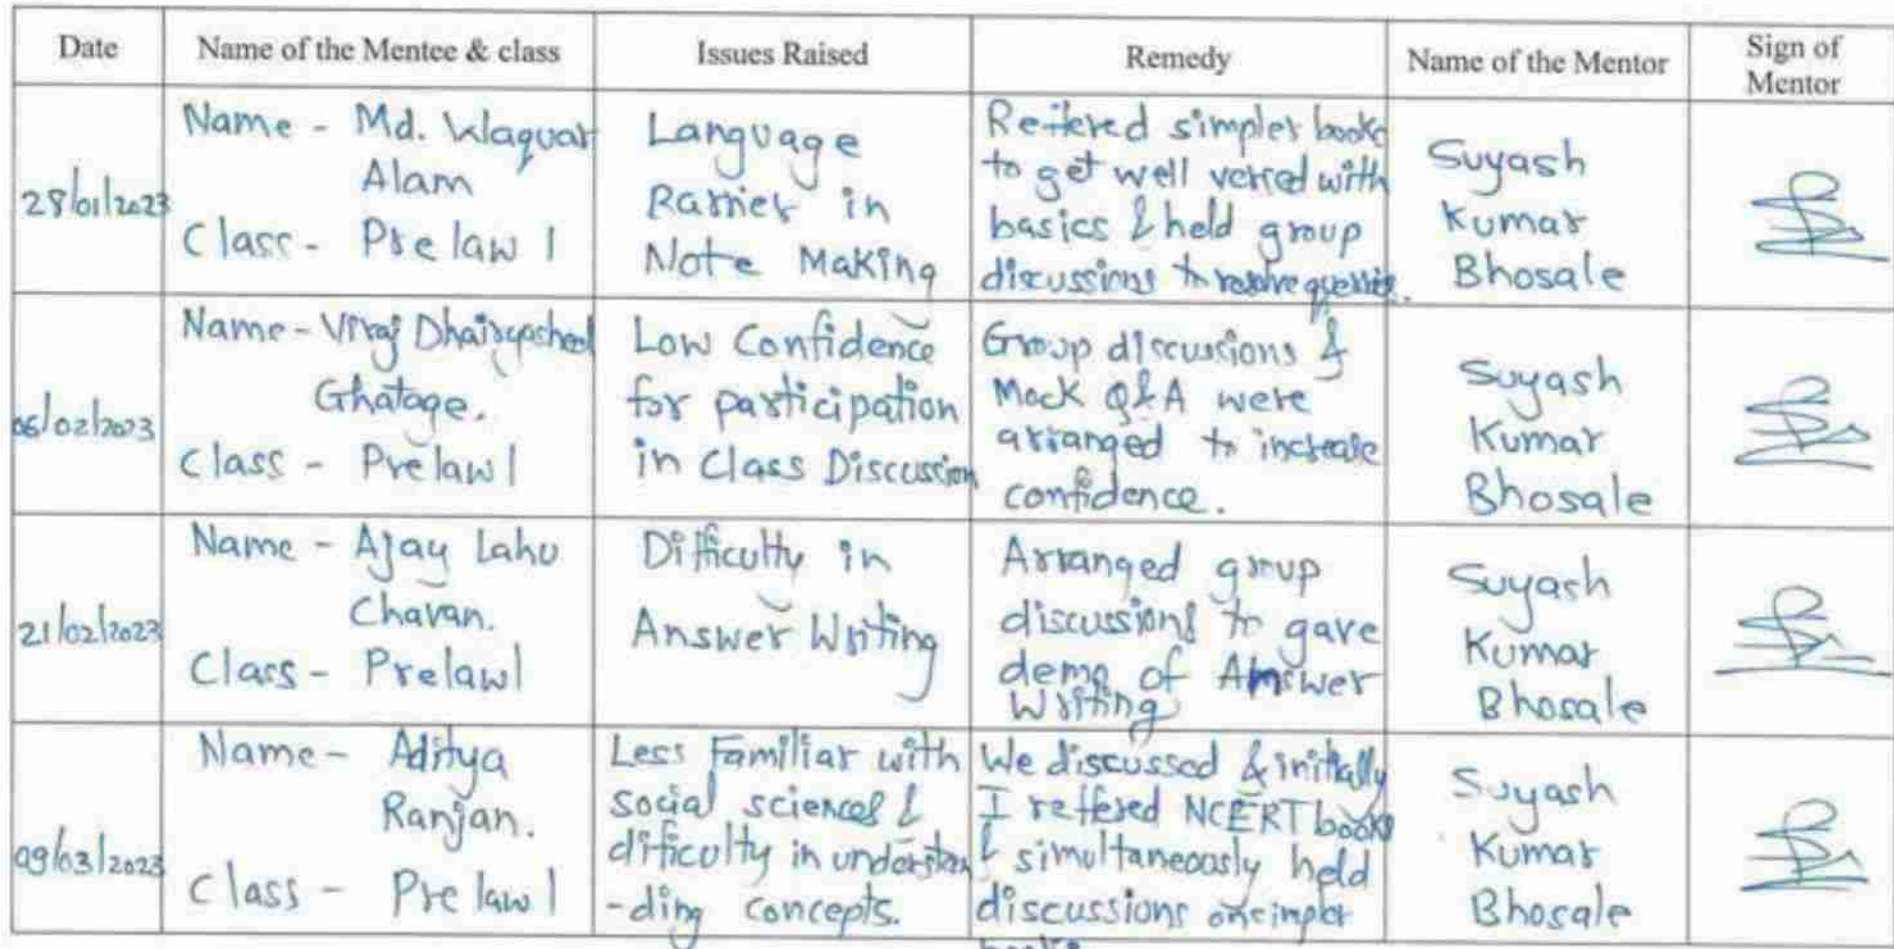 Date
Name of the Mentee & class
Issues Raised
Remedy
Name of the Mentor
Sign of
Mentor
28/01/2023
Name - Md. Waquar
Alam
Class - Prelaw I
Language
Barrier in
Note Making
Reffered simpler books
to get well versed with
basics & held group
discussions to resolve queries.
Suyash
Kumar
Bhosale
06/02/2023
Name - Viraj Dhairyasheel
Ghatage.
Class - Prelaw I
Low Confidence
for participation
in Class Discussion
Group discussions &
Mock Q&A were
arranged to increase
confidence.
Suyash
Kumar
Bhosale
21/02/2023
Name - Ajay Lahu
Chavan.
Class - Prelaw I
Difficulty in
Answer Writing
Arranged group
discussions to gave
demo of Answer
Writing
Suyash
Kumar
Bhosale
09/03/2023
Name - Aditya
Ranjan.
Class - Prelaw I
Less Familiar with
social sciences &
difficulty in understan
-ding concepts.
We discussed & initially
I reffered NCERT books
& simultaneously held
discussions on simpler
Suyash
Kumar
Bhosale